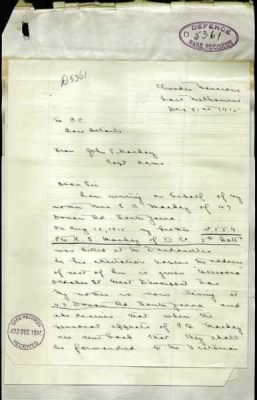 DEFENCE
D 5361
BASE RECORDS
D5361
East Melbourne
Dec 21st 1915
To O.C.
Base Details
From John S. Mackay
Capt
Dear Sir
I am writing on behalf of my
mother Mrs E. Mackay of 47
Domain Rd South Yarra
On Aug 1915 my brother 554
Pte K. S. Mackay of D Co. 5th Batt
was killed at the Dardanelles
In his attestation papers the address
of next of kin is given
St West Devonport
My mother is now living at
47 Domain Rd South Yarra and
she desires that when the
personal effects of Pte Mackay
are sent back that they shall
be forwarded to the Victoria
BASE RECORDS
RECEIVED
22 DEC 1915